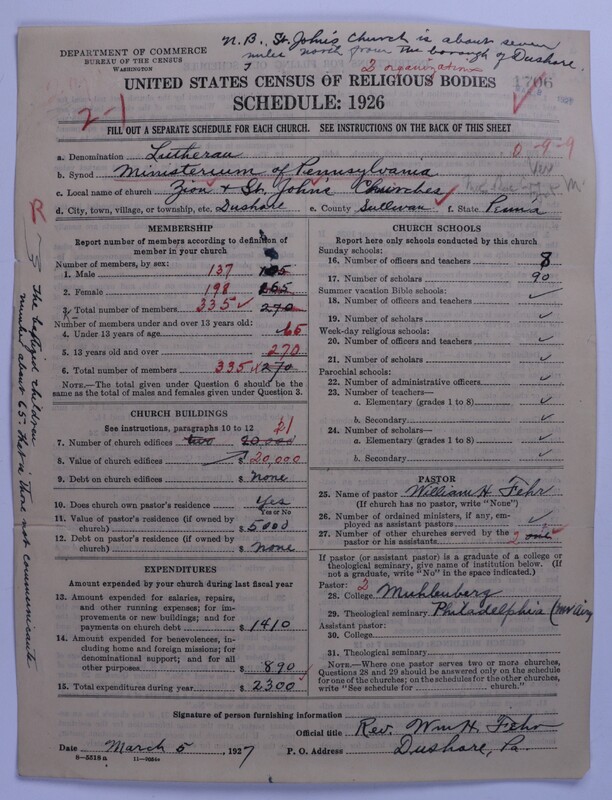 N.B. St. John's Church is about seven
miles north from the borough of Dushore.
DEPARTMENT OF COMMERCE
BUREAU OF THE CENSUS
WASHINGTON
2 organizations
UNITED STATES CENSUS OF RELIGIOUS BODIES
1706
SCHEDULE: 1926
2-1
FILL OUT A SEPARATE SCHEDULE FOR EACH CHURCH. SEE INSTRUCTIONS ON THE BACK OF THIS SHEET
0-9-9
a. Denomination Lutheran
b. Synod Ministerium of Pennsylvania
c. Local name of church Zion & St. John's Churches
d. City, town, village, or township, etc. Dushore e. County Sullivan f. State Penna
R
MEMBERSHIP
Report number of members according to definition of
member in your church
Number of members, by sex:
1. Male 137
2. Female 198
3. Total number of members 335 270
Number of members under and over 13 years old:
4. Under 13 years of age 65
5. 13 years old and over 270
6. Total number of members 335 270
NOTE.—The total given under Question 6 should be the
same as the total of males and females given under Question 3.
The baptized children
number about 65 that is those not communicants
CHURCH BUILDINGS
See instructions, paragraphs 10 to 12
7. Number of church edifices two 20,000 1
8. Value of church edifices $ 20,000
9. Debt on church edifices $ None
10. Does church own pastor's residence Yes
Yes or No
11. Value of pastor's residence (if owned by
church) $ 5000
12. Debt on pastor's residence (if owned by
church) $ None
EXPENDITURES
Amount expended by your church during last fiscal year
13. Amount expended for salaries, repairs,
and other running expenses; for im-
provements or new buildings; and for
payments on church debt $ 1410
14. Amount expended for benevolences, in-
cluding home and foreign missions; for
denominational support; and for all
other purposes $ 890
15. Total expenditures during year $ 2300
CHURCH SCHOOLS
Report here only schools conducted by this church
Sunday schools:
16. Number of officers and teachers 8
17. Number of scholars 90
Summer vacation Bible schools:
18. Number of officers and teachers
19. Number of scholars
Week-day religious schools:
20. Number of officers and teachers
21. Number of scholars
Parochial schools:
22. Number of administrative officers
23. Number of teachers—
a. Elementary (grades 1 to 8)
b. Secondary
24. Number of scholars—
a. Elementary (grades 1 to 8)
b. Secondary
PASTOR
25. Name of pastor William H. Fehr
(If church has no pastor, write "None")
26. Number of ordained ministers, if any, em-
ployed as assistant pastors
27. Number of other churches served by the
pastor or his assistants one
If pastor (or assistant pastor) is a graduate of a college or
theological seminary, give name of institution below. (If
not a graduate, write "No" in the space indicated.)
Pastor: 2
28. College Muhlenberg
29. Theological seminary Philadelphia (Mt Airy)
Assistant pastor:
30. College
31. Theological seminary
NOTE.—Where one pastor serves two or more churches,
Questions 28 and 29 should be answered only on the schedule
for one of the churches; on the schedules for the other churches,
write "See schedule for church."
Signature of person furnishing information
Official title Rev. Wm H. Fehr
Date March 5, 1927 P. O. Address Dushore, Pa.
8—5518a 11—9054